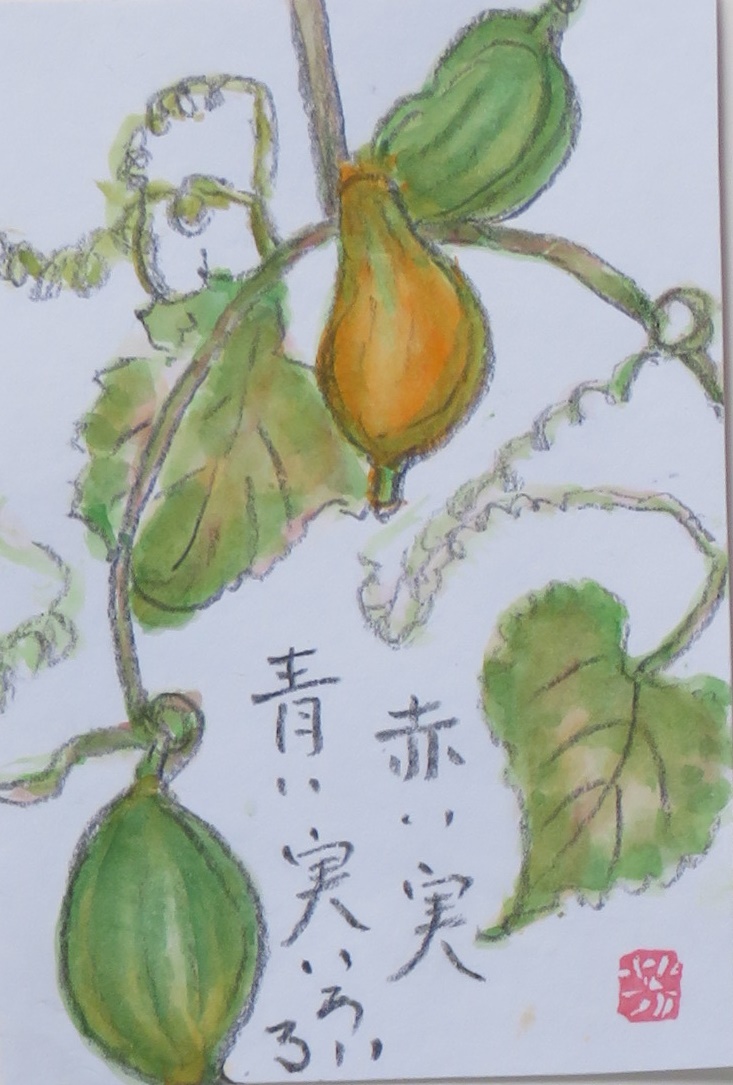 赤い実
青い実いろい
ろ